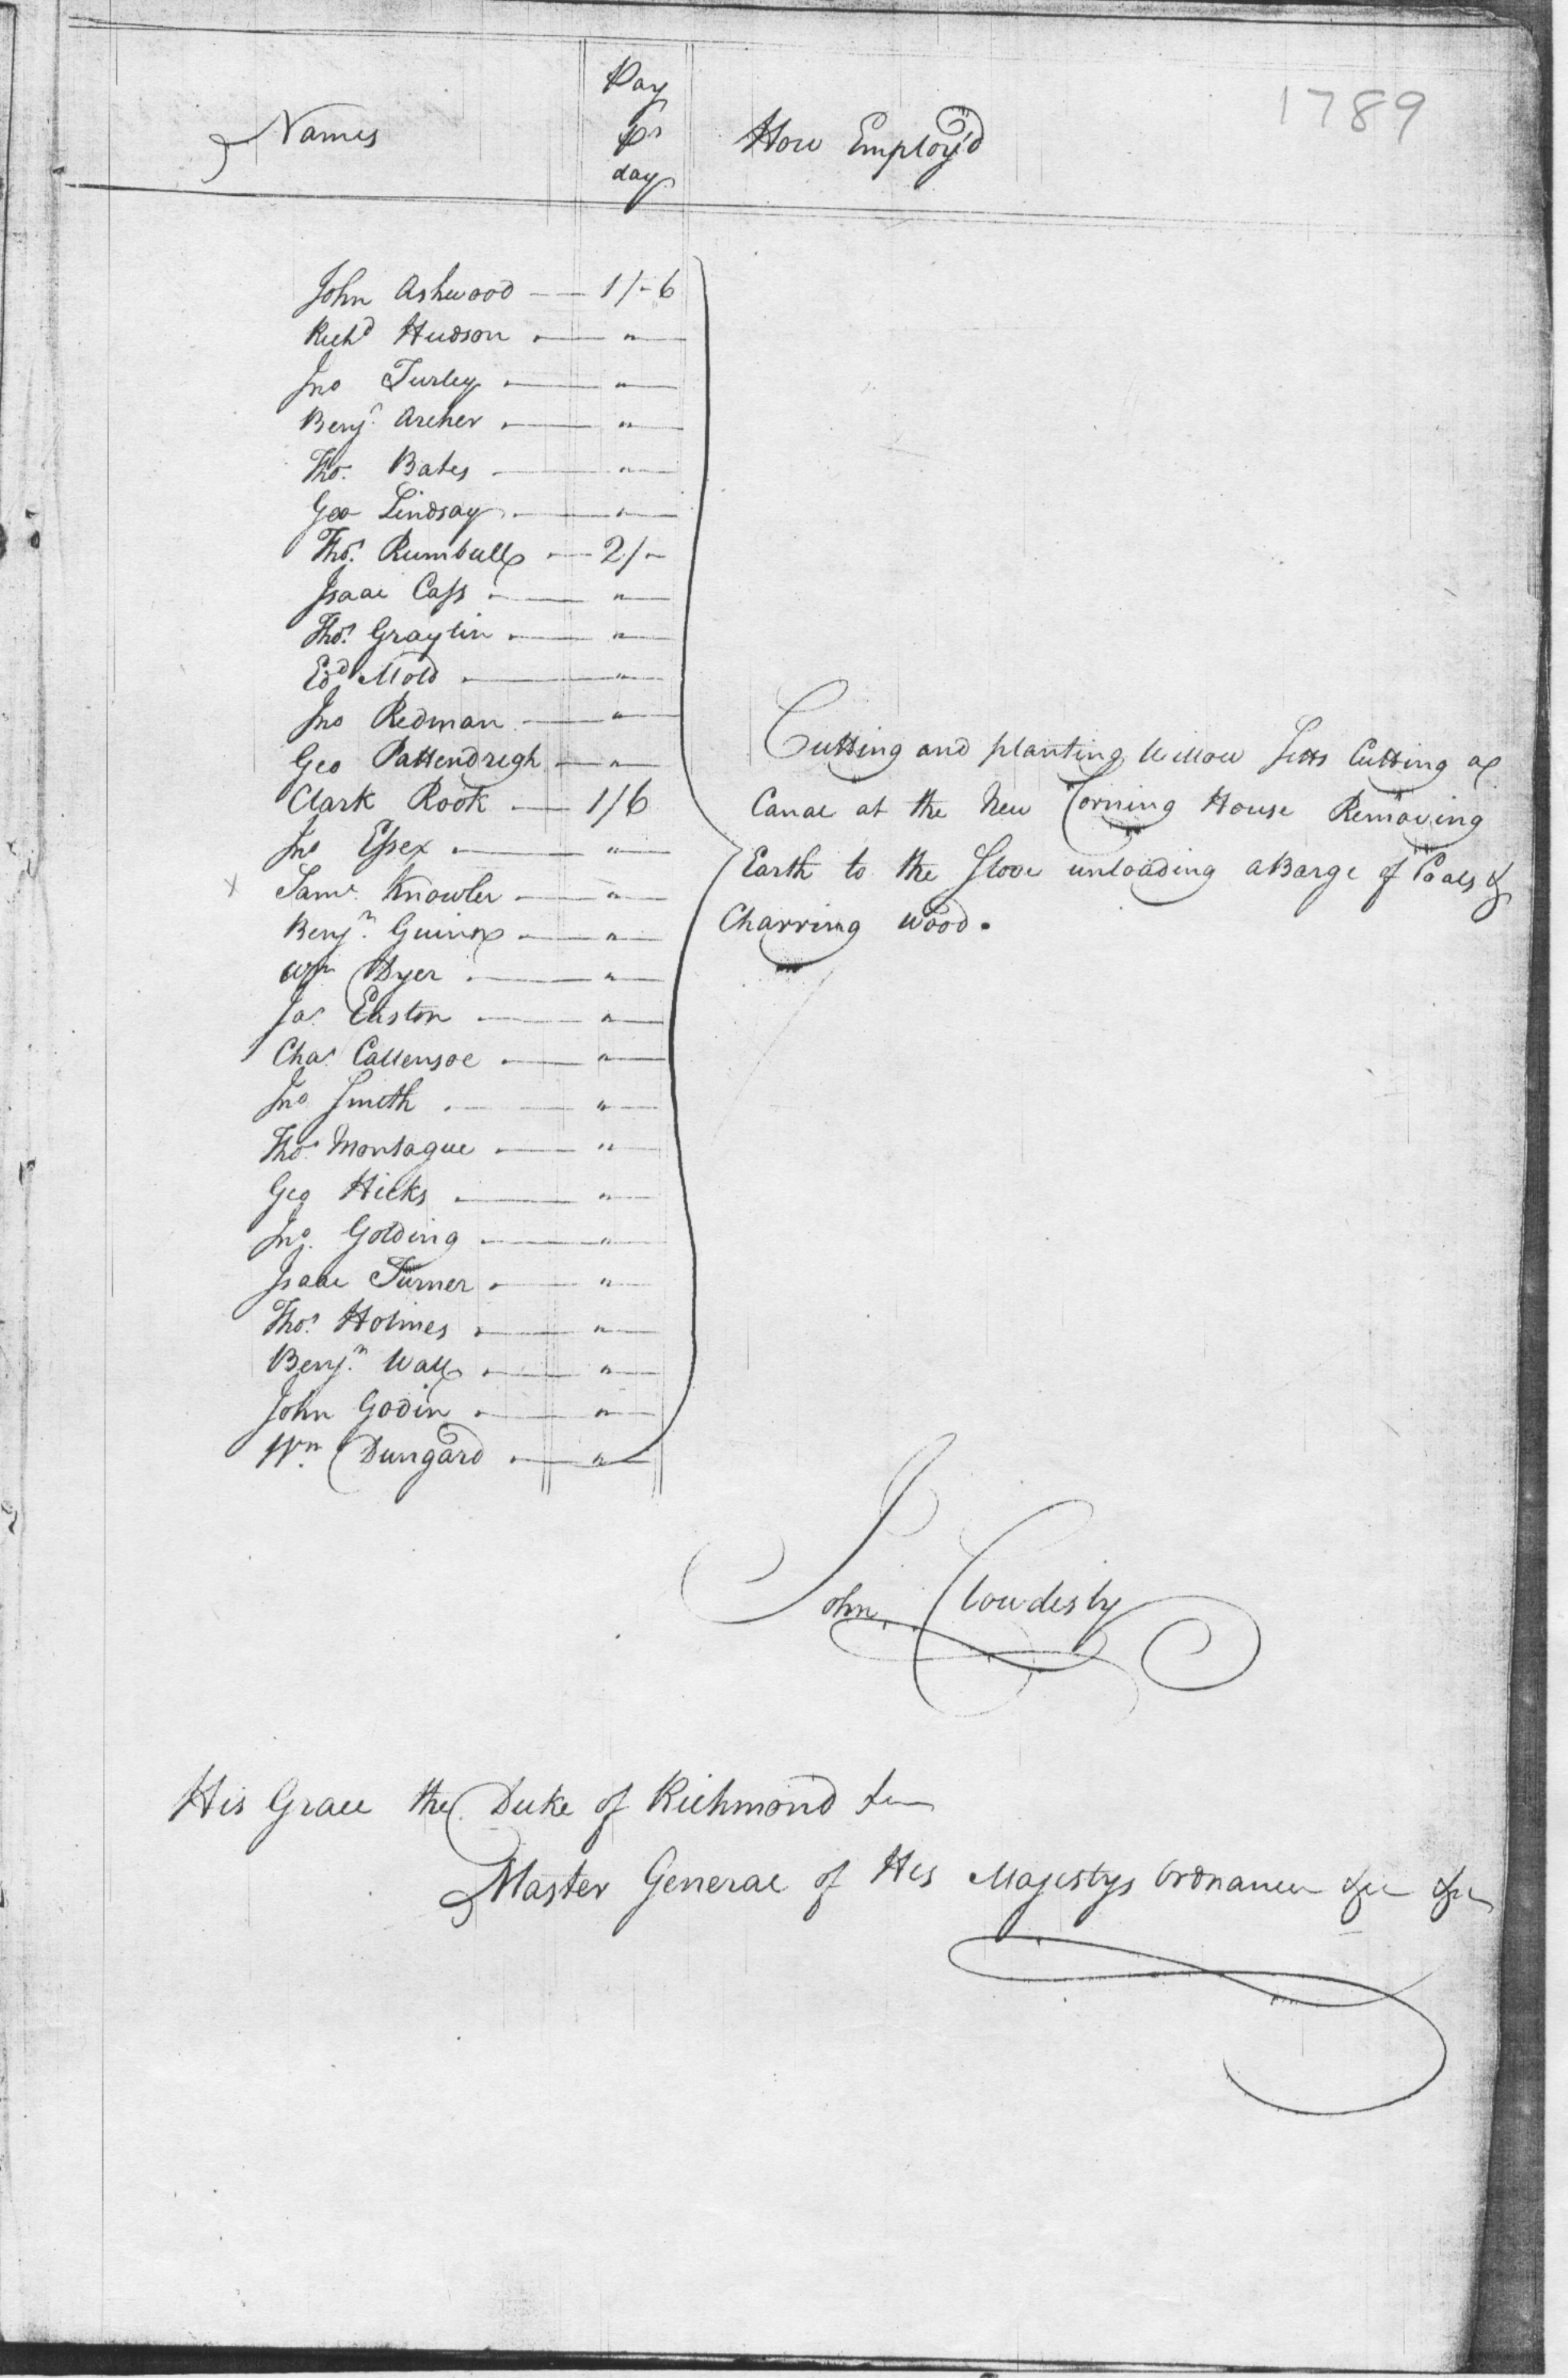 1789
Names
Pay
pr
day
How Employ'd
John Ashwood 1/-6
Richd Hudson "
Jno Turley "
Benj. Archer "
Thos. Bates "
Geo Lindsay "
Thos. Rumball 2/-
Isaac Cass "
Thos. Graylin "
Edd Mold "
Jno Redman "
Geo Pattendregh "
Clark Rook 1/6
Jno Essex "
x Saml. Knowler "
Benjn. Guinn "
Wm Dyer "
Jas. Easton "
Chas. Callensoe "
Jno Smith "
Thos Montague "
Geo Hicks "
Jno. Golding "
Isaac Turner "
Thos. Holmes "
Benjn. Wall "
John Godin "
Wm. Dungard "
Cutting and planting Willow Setts Cutting a
Canal at the New Corning House Removing
Earth to the Stove unloading a Barge of Coals &
Charring Wood.
John Clowdesly
His Grace the Duke of Richmond &c
Master General of His Majestys Ordnance &c &c